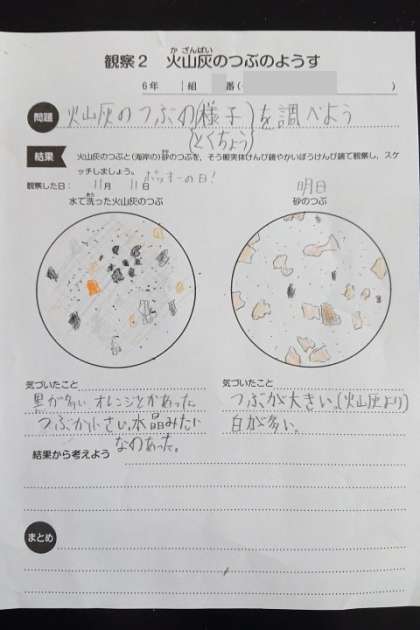 観察2 火山灰のつぶのようす
か ざんばい
6年 1組 番(
問題 火山灰のつぶの(様子)を調べよう
(とくちょう)
結果 火山灰のつぶと(海岸の)砂のつぶを、そう眼実体けんび鏡やかいぼうけんび鏡で観察し、スケ
ッチしましょう。
観察した日: 11月 11日 ポッキーの日! 明日
水で洗った火山灰のつぶ 砂のつぶ
気づいたこと
黒が多い オレンジとかあった
つぶが小さい。水晶みたい
なのあった。
気づいたこと
つぶが大きい。(火山灰より)
白が多い。
結果から考えよう
まとめ